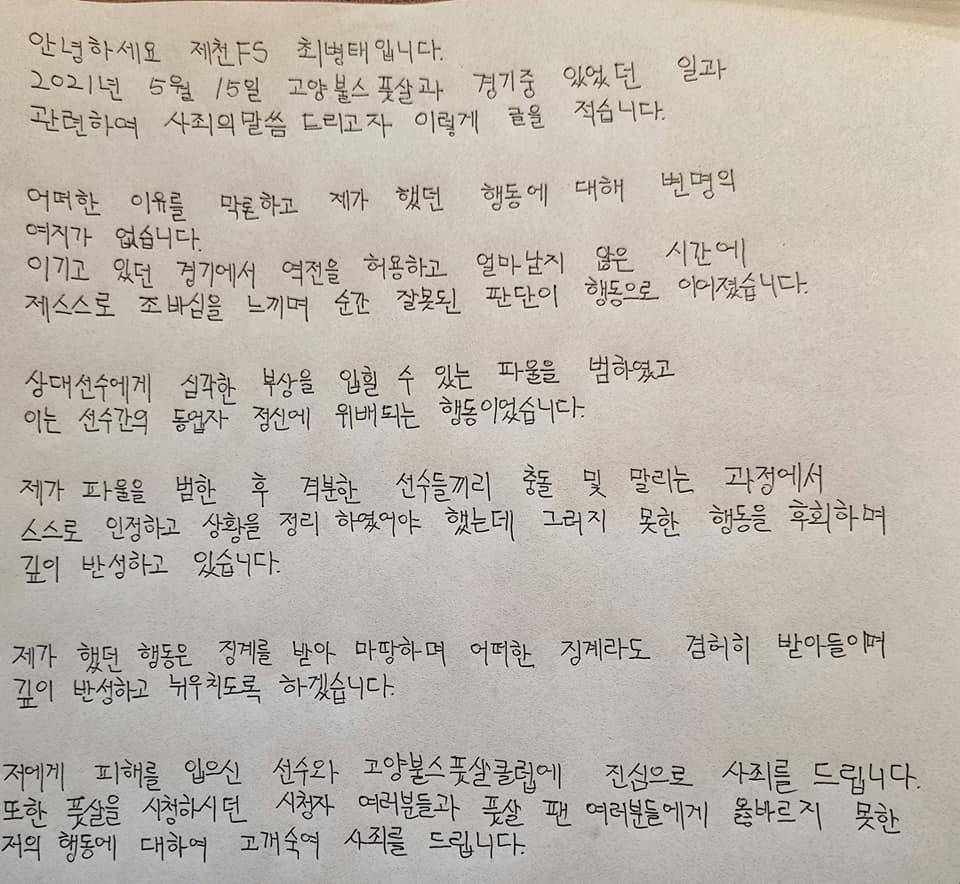 안녕하세요 제천FS 최병태입니다.
2021년 5월 15일 고양불스풋살과 경기중 있었던 일과
관련하여 사죄의말씀 드리고자 이렇게 글을 적습니다.
어떠한 이유를 막론하고 제가 했던 행동에 대해 변명의
여지가 없습니다.
이기고 있던 경기에서 역전을 허용하고 얼마남지 않은 시간에
제스스로 조바심을 느끼며 순간 잘못된 판단이 행동으로 이어졌습니다.
상대선수에게 심각한 부상을 입힐 수 있는 파울을 범하였고
이는 선수간의 동업자 정신에 위배되는 행동이었습니다.
제가 파울을 범한 후 격분한 선수들끼리 충돌 및 말리는 과정에서
스스로 인정하고 상황을 정리 하였어야 했는데 그러지 못한 행동을 후회하며
깊이 반성하고 있습니다.
제가 했던 행동은 징계를 받아 마땅하며 어떠한 징계라도 겸허히 받아들이며
깊이 반성하고 뉘우치도록 하겠습니다.
저에게 피해를 입으신 선수와 고양불스풋살클럽에 진심으로 사죄를 드립니다.
또한 풋살을 시청하시던 시청자 여러분들과 풋살 팬 여러분들에게 옳바르지 못한
저의 행동에 대하여 고개숙여 사죄를 드립니다.